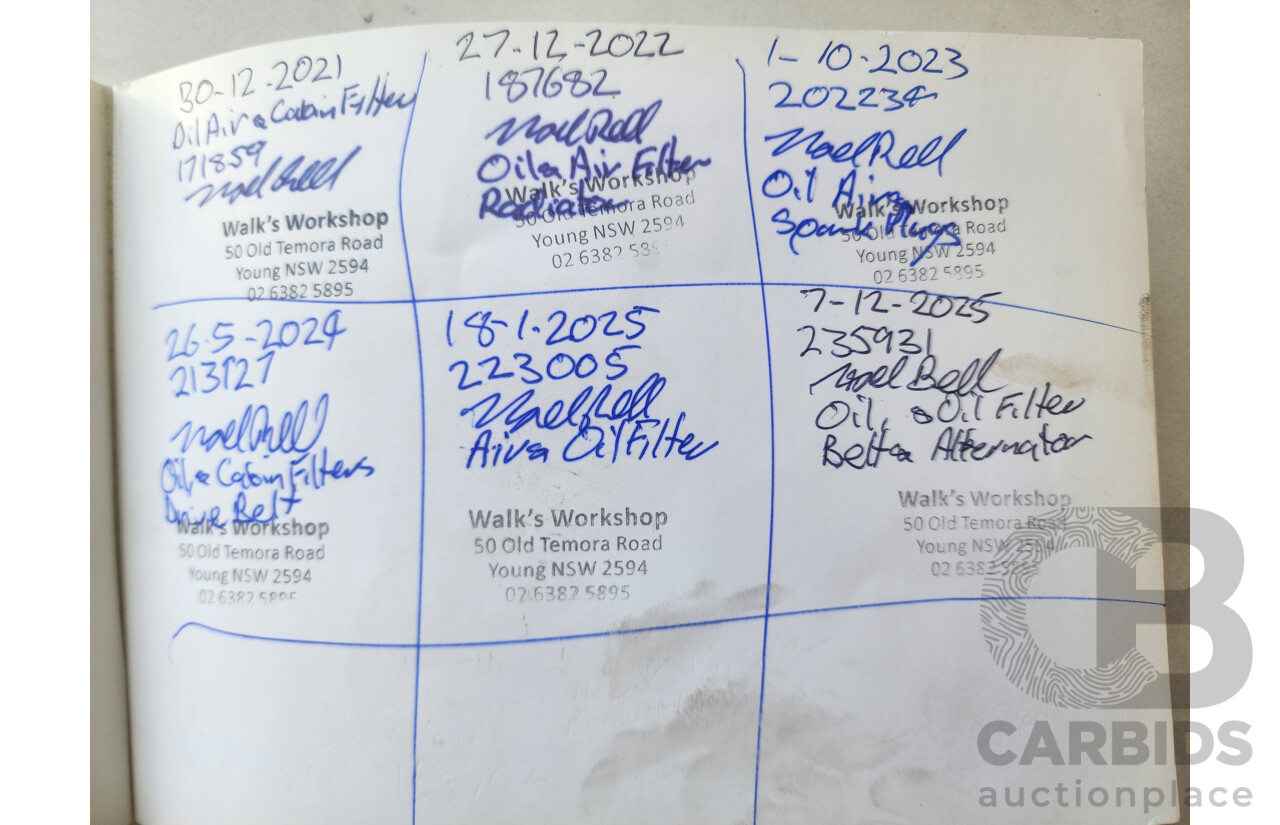 30-12-2021
Oil Air & Cabin Filter
171859
Noel Bell
Walk's Workshop
50 Old Temora Road
Young NSW 2594
02 6382 5895
27-12-2022
187682
Noel Bell
Oil & Air Filter
Radiator
Walk's Workshop
50 Old Temora Road
Young NSW 2594
02 6382 589
1-10-2023
202234
Noel Bell
Oil Air &
Spark Plugs
Walk's Workshop
50 Old Temora Road
Young NSW 2594
02 6382 5895
26-5-2024
213127
Noel Bell
Oil & Cabin Filters
Drive Belt
Walk's Workshop
50 Old Temora Road
Young NSW 2594
02 6382 5895
18-1-2025
223005
Noel Bell
Air & Oil Filter
Walk's Workshop
50 Old Temora Road
Young NSW 2594
02 6382 5895
7-12-2025
235931
Noel Bell
Oil, & Oil Filter
Belt & Alternator
Walk's Workshop
50 Old Temora Road
Young NSW 2594
02 638
CB
CARBIDS
auctionplace